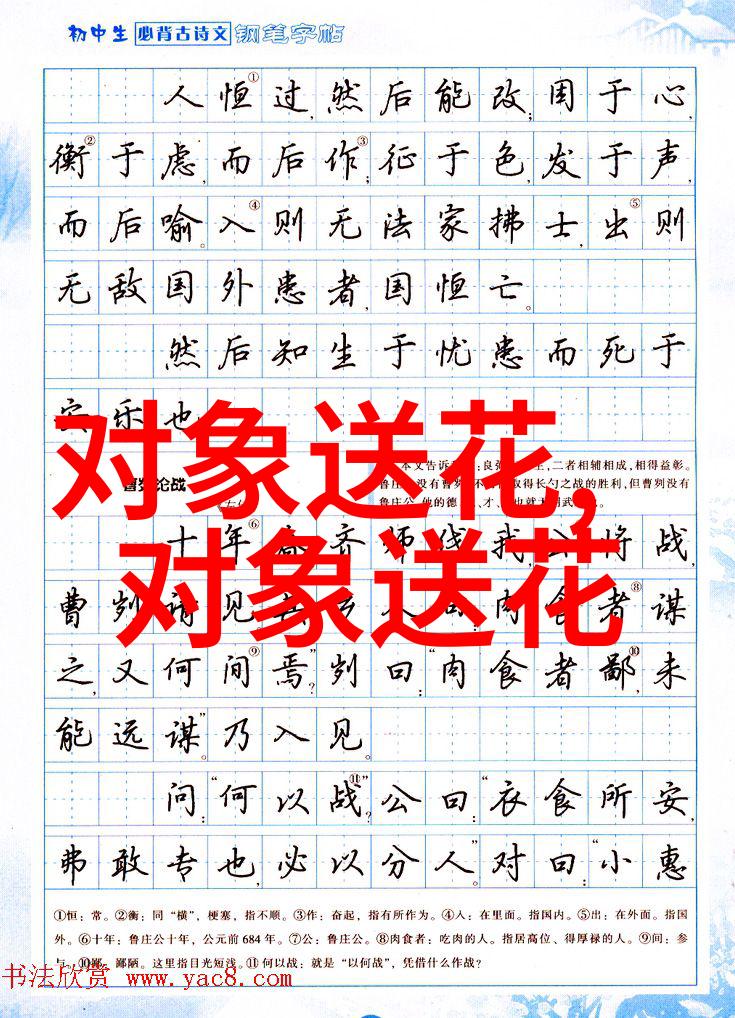 初中生 必背古诗文 钢笔字帖
人恒①过,然后能改;困于心,
衡②于虑,而后作③;征于色,发于声,
而后喻。入④则无法家拂士,出⑤则
无敌国外患者,国恒亡。
然后知生于忧患而死于
安乐也
对象送花,
对象送花
曹刿论战
本文告诉
二者相辅相成,相得益彰。
鲁庄 没有曹 取得长勺之战的胜利,但曹刿没有
鲁庄公 他的德 才
十年⑥ 齐师伐我,公将战,
曹刿请见 人曰:“肉食者⑧谋
之,又何间⑨焉?”刿曰:“肉食者鄙⑩,未
能远谋。”乃入见。
问:“何以战⑪?”公曰:“衣食所安,
弗敢专也,必以分人。”对曰:“小惠
①恒:常。②衡:同“横”,梗塞,指不顺。③作:奋起,指有所作为。④入:在里面。指国内。⑤出:在外面。指国
外。⑥十年:鲁庄公十年,公元前684年。⑦公:鲁庄公。⑧肉食者:吃肉的人。指居高位、得厚禄的人。⑨间:参
与。⑩鄙:鄙陋。这里指目光短浅。⑪何以战:就是“以何战”,凭借什么作战?
书法欣赏 www.yac8.com